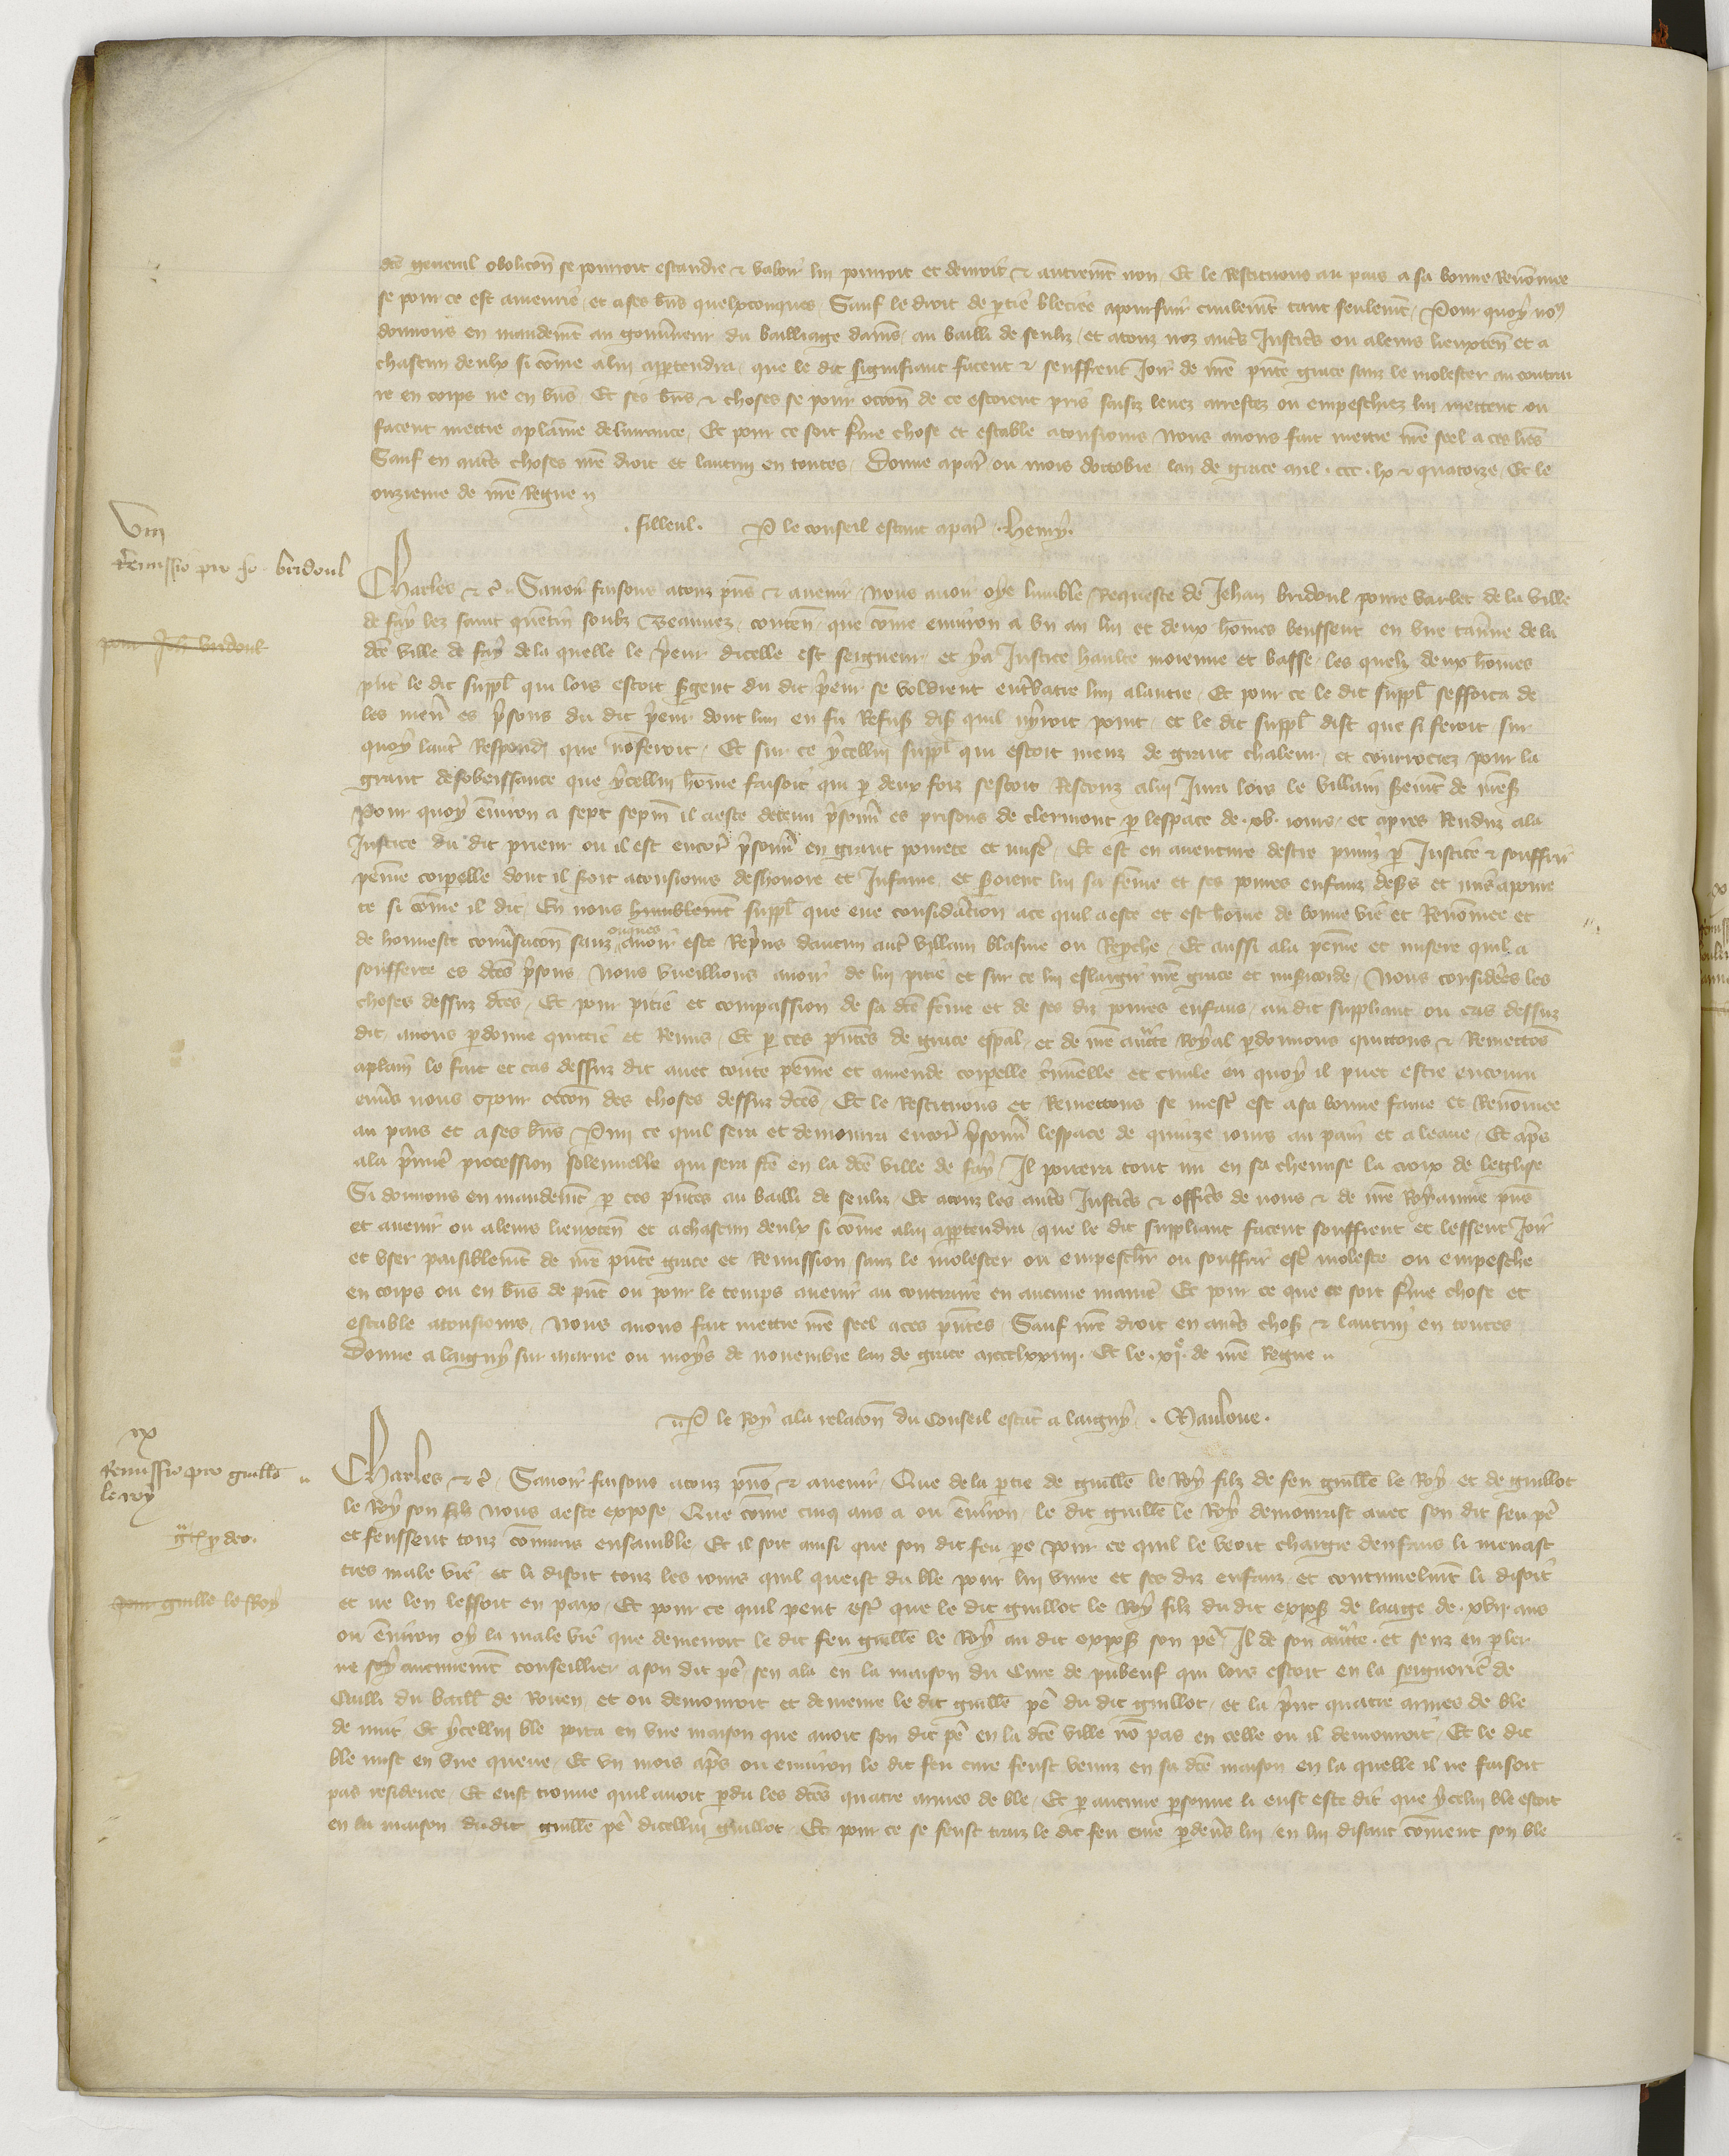 dce general obolicon se pourroit estandre & valoir lui pourroit et devroit & autremt non Et le Restituons au pais a sa bonne Renomee
se pour ce est amenrie et a ses bns quelxconques Sauf le droit de ptie bleciee a poursuir civilemt tant seulemt Pour quoy nos
donnons en mandemt au gouvneur du bailliage damiens au bailli de senliz et a touz noz autres Justices ou a leurs lieuxten et a
chascun deulx si come a lui apptendra que le dit signifiant facent & seuffrent Joir de nre pnte grace sanz le molester au contrai
re en corps ne en bns Et ses bns & choses se pour occon de ce estoient pris saisiz levez arrestez ou empeschiez lui mettent ou
facent mettre a plaine delivrance Et pour ce soit ferme chose et estable a tousjours Nous avons fait mettre nre seel a ces lres
Sauf en autres choses nre droit et lautrui en toutes Donne a par ou mois doctobre lan de grace mil ccc lx & quatorze Et le
onzieme de nre Regne
filleul P le conseil estant a par Henry
VIII
Remissio pro Jo bridoul
pour Jeh bridoul
Charles & c Savoir faisons a touz pns & avenir Nous avoir oye lumble Requeste de Jehan bridoul povre varlet de la ville
de fay lez saint quentin soubz Beauvez conten que come environ a un an lui et deux homes beussent en une taverne de la
dce ville de fay de la quelle le prieur dicelle est seigneur et y a Justice haulte moienne et basse les quelz deux homes
pnt le dit suppl qui lors estoit sergent du dit prieur se voldrent entrebatre lun a lautre Et pour ce le dit suppl sefforca de
les mener es prisons du dit prieur dont lun en fu Refus dist quil nyroit point et le dit suppl dist que si feroit sur
quoy lautre Respondi que non feroit Et sur ce ycellui suppl qui estoit meuz de grant chaleur et courrociez pour la
grant desobeissance que ycellui home faisoit qui p deux foiz sestoit Rescouz a lui Jura lors le villain serment
Pour quoy environ a sept sepm il a este detenu prisonn es prisons de clermont p lespace de xv jours et apres Renduz a la
Justice du dit prieur ou il est encor prisonn en grant povrete et misere Et est en aventure destre puniz p Justice & souffrir
penne corpelle dont il seroit a tousjours deshonore et Infame et seroient lui sa feme et ses povres enfanz desers et mis a povre
te si come il dit En nous humblemt suppl que eue consideration a ce quil a este et est home de bonne vie et Renomee et
de honneste conversacon sanz onques avoir este Repris daucun autre villain blasme ou Reproche Et aussi a la penne et misere quil a
soufferte es dces prisons Nous vueillions avoir de lui pitie et sur ce lui eslargir nre grace et misericorde Nous considerees les
choses dessuz dces Et pour pitie et compassion de sa dce feme et de ses diz povres enfans au dit suppliant ou cas dessuz
dit avons pdonne quittie et Remis Et p ces pntes de grace espal et de nre auctte Royal pdonnons quittons & Remettons
a plain le fait et cas dessuz dit avec toute penne et amende corpelle criminelle et civile en quoy il puet estre encouru
envers nous pour occon des choses dessuz dces Et le Restituons et Remettons se mestier est a sa bonne fame et Renomee
au pais et a ses bns Pmi ce quil sera et demourra encor prisonn lespace de quinze jours au pain et a leaue Et apres
a la premiere procession solennelle qui sera fte en la dce ville de fay Il portera tout nu en sa chemise la croix de leglise
Si donnons en mandemt p ces pntes au bailli de senliz Et a touz les autres Justices & officiers de nous & de nre Royaume pns
et avenir ou a leurs lieuxten et a chascun deulx si come a lui apptendra que le dit suppliant facent souffrent et lessent Joir
et user paisiblemt de nre pnte grace et Remission sanz le molester ou empeschier ou souffrir estre moleste ou empesche
en corps ou en bns de pnt ou pour le temps avenir au contraire en aucune maniere Et pour ce que ce soit ferme chose et
estable a tousjours Nous avons fait mettre nre seel a ces pntes Sauf nre droit en autres choses & lautrui en toutes
Donne a laigny sur marne ou moys de novembre lan de grace mccclxxiiii Et le xi de nre Regne
P le Roy a la relacon du Conseil estant a laigny Mauloue
IX
Remissio pro guille
le roy
pour guille le Roy
Charles & c Savoir faisons a touz pns & avenir Que de la ptie de guille le Roy filz de feu guille le Roy et de guillot
le Roy son filz nous a este expose Que come cinq ans a ou environ le dit guille le Roy demourast avec son dit feu pe
et feussent touz comuns ensamble Et il soit ainsi que son dit feu pe pour ce quil le veoit chargie denfans li menast
tres male vie et li disoit touz les jours quil queist du ble pour lui vivre et ses diz enfanz et continuelmt li disoit
et ne len lessoit en paix Et pour ce quil peut estre que le dit guillot le Roy filz du dit expos de laage de xvii ans
ou environ oy la male vie que demenoit le dit feu guille le Roy au dit expos son pe Il de son auctte et senz en pler
ne soy aucunemt conseillier a son dit pe sen ala en la maison du Cure de pubeuf qui lors estoit en la seignorie de
Quilli du baill de Rouen et ou demouroit et demeure le dit guille pe du dit guillot et la prit quatre mines de ble
de nuit Et ycellui ble porta en une maison que avoit son dit pe en la dce ville no pas en celle ou il demouroit Et le dit
ble mist en une queue Et un mois apres ou environ le dit feu cure feust venuz en sa dce maison en la quelle il ne faisoit
pas residence Et eust trouve quil avoit pdu les dces quatre mines de ble Et p aucune psonne li eust este dit que ycelui ble estoit
en la maison du dit guille pe dicellui guillot Et pour ce se feust traiz le dit feu cure p devers lui en lui disant coment son ble